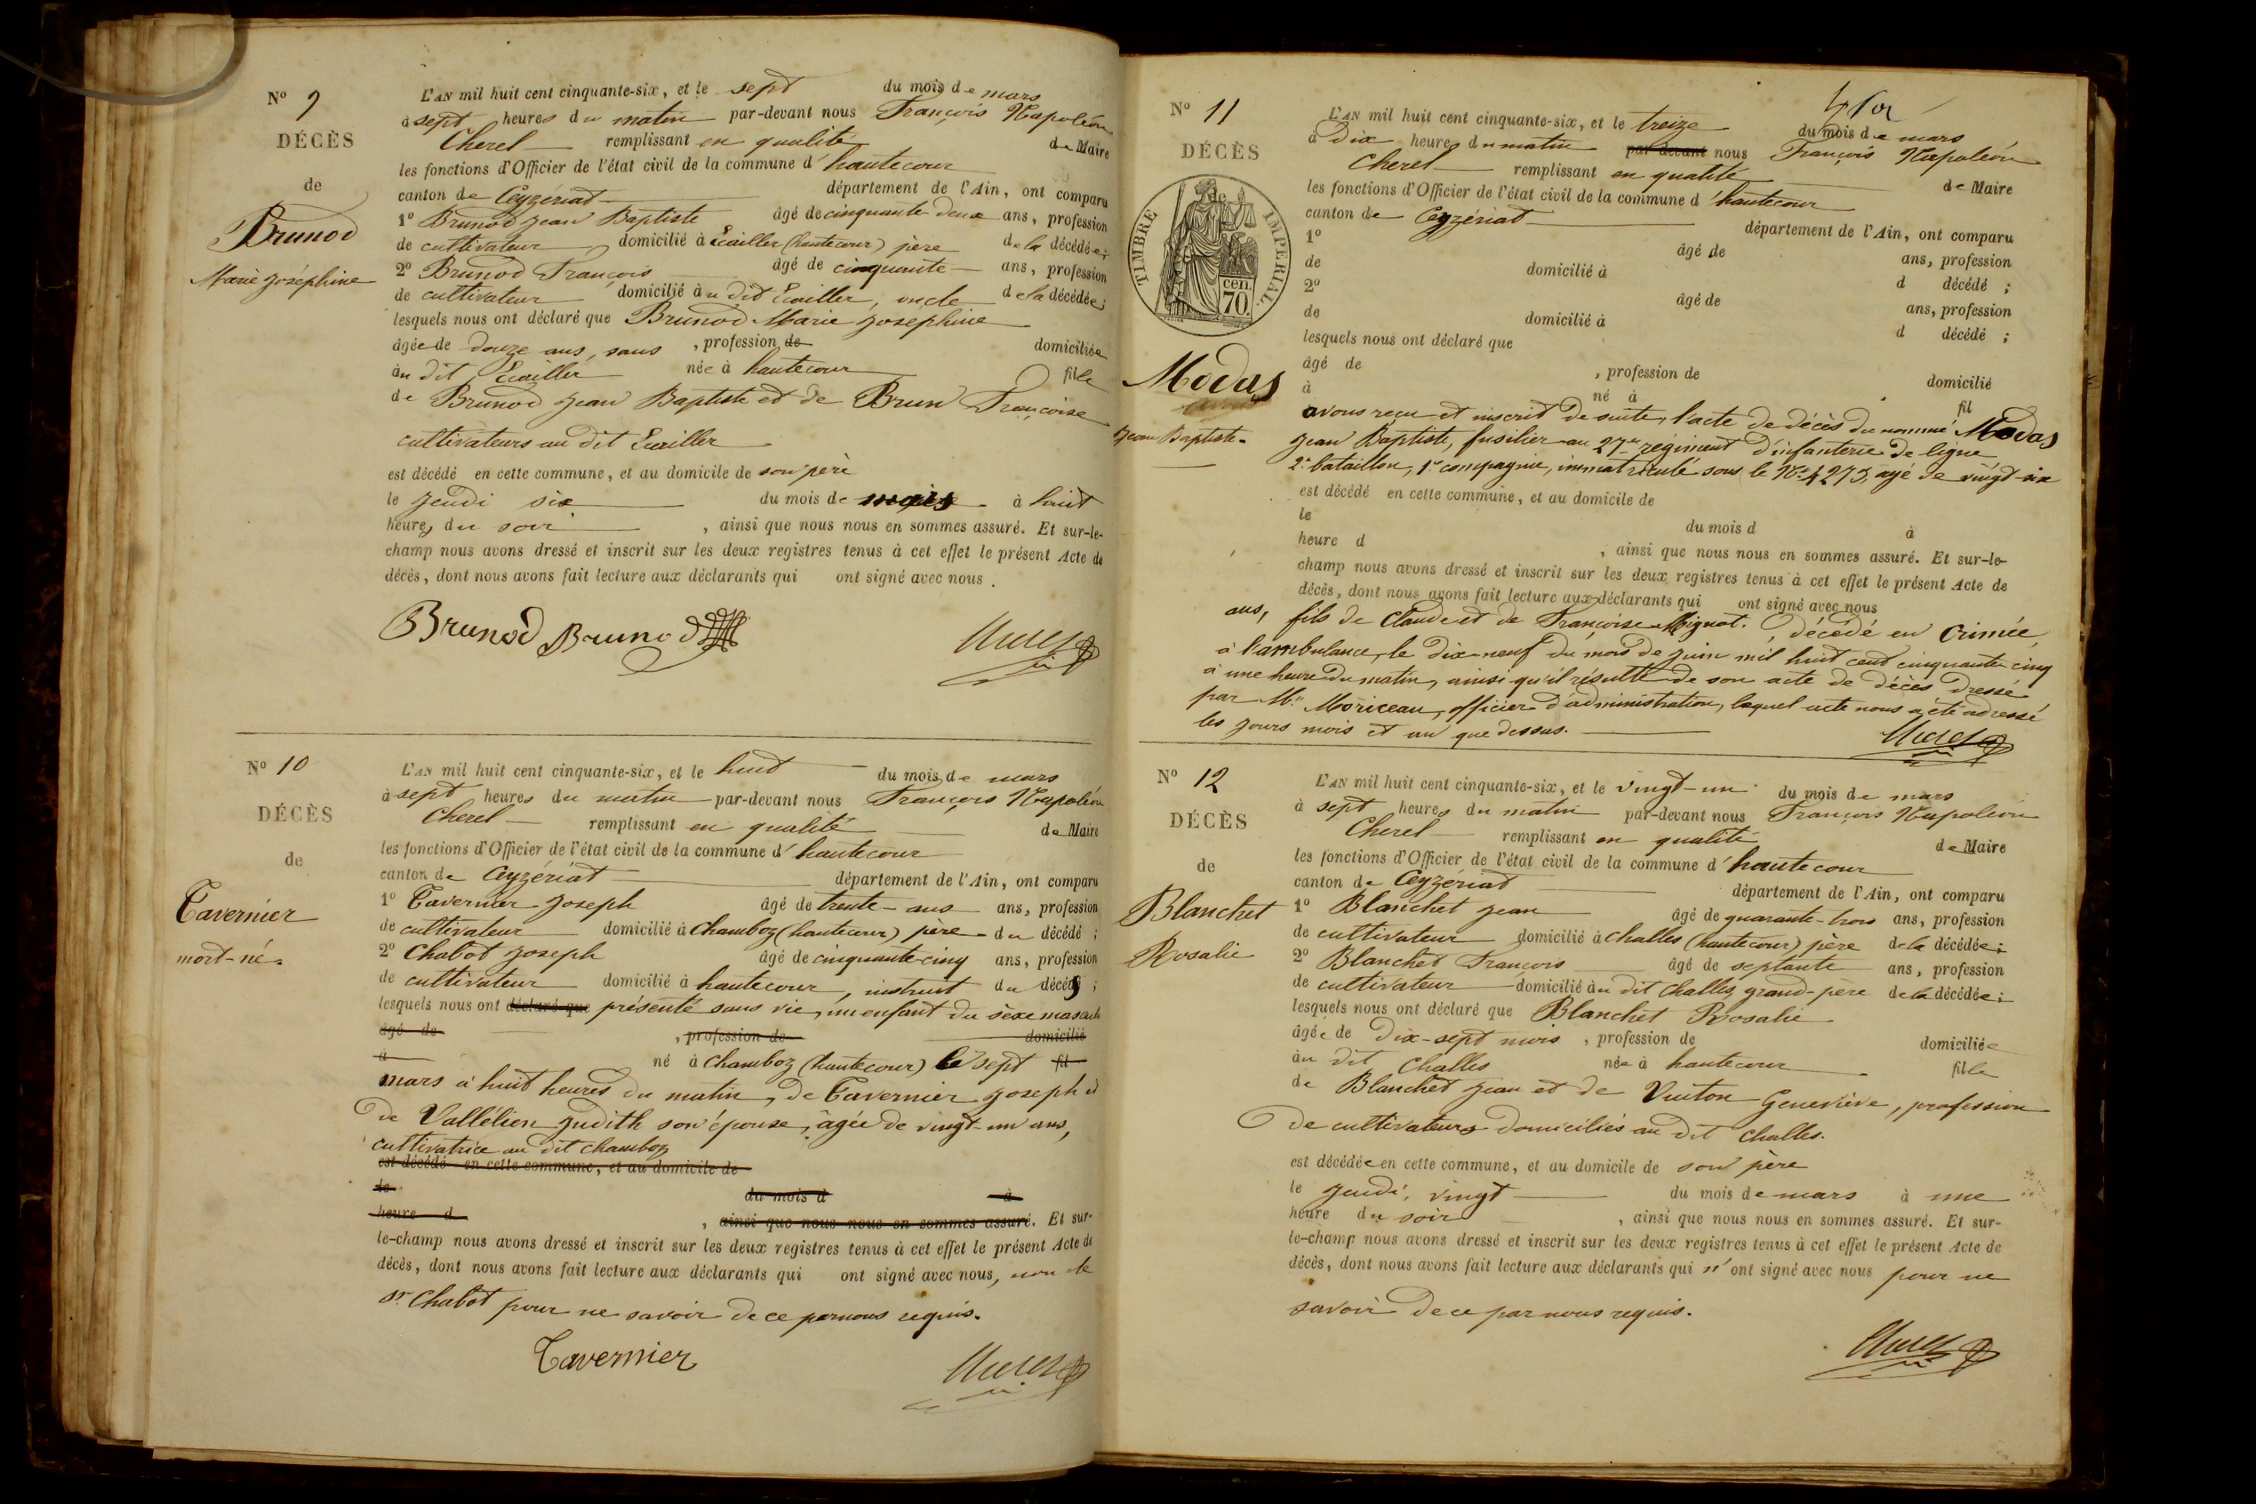 N° 9
DÉCÈS
de
Brunod
Marie Joséphine
L'AN mil huit cent cinquante-six, et le sept du mois de mars
à sept heures du matin par-devant nous François Napoléon
Cherel remplissant en qualité de Maire
les fonctions d'Officier de l'état civil de la commune d'hautecour
canton de Ceyzériat département de l'Ain, ont comparu
1° Brunod Jean Baptiste âgé de cinquante deux ans, profession
de cultivateur domicilié à Ecailler (hautecour) père de la décédée;
2° Brunod François âgé de cinquante ans, profession
de cultivateur domicilié au dit Ecailler, oncle de la décédée;
lesquels nous ont déclaré que Brunod Marie Josephine
âgée de douze ans, sans , profession de domiciliée
au dit Ecailler née à hautecour fille
de Brunod Jean Baptiste et de Brun Françoise
cultivateurs au dit Ecailler
est décédé en cette commune, et au domicile de son père
le jeudi six du mois de mars à huit
heures du soir , ainsi que nous nous en sommes assuré. Et sur-le-
champ nous avons dressé et inscrit sur les deux registres tenus à cet effet le présent Acte de
décès, dont nous avons fait lecture aux déclarants qui ont signé avec nous.
Brunod Brunod Cherel
N° 10
DÉCÈS
de
Tavernier
mort-né
L'AN mil huit cent cinquante-six, et le huit du mois de mars
à sept heures du matin par-devant nous François Napoléon
Cherel remplissant en qualité de Maire
les fonctions d'Officier de l'état civil de la commune d'hautecour
canton de Ceyzériat département de l'Ain, ont comparu
1° Tavernier Joseph âgé de trente-ans ans, profession
de cultivateur domicilié à Chamboz (hautecour) père du décédé;
2° Chabot Joseph âgé de cinquante-cinq ans, profession
de cultivateur domicilié à hautecour, instruit du décès;
lesquels nous ont déclaré que présenté sans vie, un enfant du sèxe masculin
âgé de , profession de domicilié
à né à Chamboz (hautecour) le sept fil
mars à huit heures du matin, de Tavernier Joseph et
de Vallélien Judith son épouse, âgée de vingt-un ans,
cultivatrice au dit Chamboz
est décédé en cette commune, et au domicile de
le du mois d à
heure d , ainsi que nous nous en sommes assuré. Et sur-
le-champ nous avons dressé et inscrit sur les deux registres tenus à cet effet le présent Acte de
décès, dont nous avons fait lecture aux déclarants qui ont signé avec nous, non le
Sr Chabot pour ne savoir de ce par nous requis.
Tavernier Cherel
N° 11
DÉCÈS
TIMBRE IMPERIAL.
cen.
70.
Modas
Jean Baptiste
L'AN mil huit cent cinquante-six, et le treize du mois de mars
à Dix heures du matin par devant nous François Napoléon
Cherel remplissant en qualité de Maire
les fonctions d'Officier de l'état civil de la commune d'hautecour
canton de Ceyzériat département de l'Ain, ont comparu
1° âgé de ans, profession
de domicilié à d décédé;
2° âgé de ans, profession
de domicilié à d décédé;
lesquels nous ont déclaré que
âgé de , profession de domicilié
à né à fil
avons reçu et inscrit de suite, l'acte de décès du nommé Modas
Jean Baptiste, fusilier au 27me régiment d'infanterie de ligne
2e bataillon, 1re compagnie, immatriculé sous le No 4273, agé de vingt-six
est décédé en cette commune, et au domicile de
le du mois d à
heure d , ainsi que nous nous en sommes assuré. Et sur-le-
champ nous avons dressé et inscrit sur les deux registres tenus à cet effet le présent Acte de
décès, dont nous avons fait lecture aux déclarants qui ont signé avec nous
ans, fils de Claude et de Françoise Mignot. décédé en Crimée,
à l'ambulance, le dix-neuf du mois de juin mil huit cent cinquante cinq
à une heure du matin, ainsi qu'il résulte de son acte de décès dressé
par Mr Moriceau, officier d'administration, lequel acte nous a été adressé
les jours mois et an que dessus.
Cherel
N° 12
DÉCÈS
de
Blanchet
Rosalie
L'AN mil huit cent cinquante-six, et le vingt-un du mois de mars
à sept heures du matin par-devant nous François Napoléon
Cherel remplissant en qualité de Maire
les fonctions d'Officier de l'état civil de la commune d'hautecour
canton de Ceyzériat département de l'Ain, ont comparu
1° Blanchet Jean âgé de quarante-trois ans, profession
de cultivateur domicilié à Challes (hautecour) père de la décédée;
2° Blanchet François âgé de septante ans, profession
de cultivateur domicilié au dit Challes, grand-père de la décédée;
lesquels nous ont déclaré que Blanchet Rosalie
âgée de Dix-sept mois , profession de domiciliée
au dit Challes née à hautecour fille
de Blanchet Jean et de Vuiton Geneviève, profession
de cultivateurs domiciliés au dit Challes.
est décédée en cette commune, et au domicile de son père
le jeudi, vingt du mois de mars à une
heure du soir , ainsi que nous nous en sommes assuré. Et sur-
le-champ nous avons dressé et inscrit sur les deux registres tenus à cet effet le présent Acte de
décès, dont nous avons fait lecture aux déclarants qui n'ont signé avec nous pour ne
savoir de ce par nous requis.
Cherel